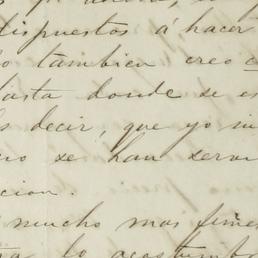 dispuestos á hacer
tambien creo
hasta donde se es
decir, que yo
no se han serv
cion.
mucho mas
lo acostumbr